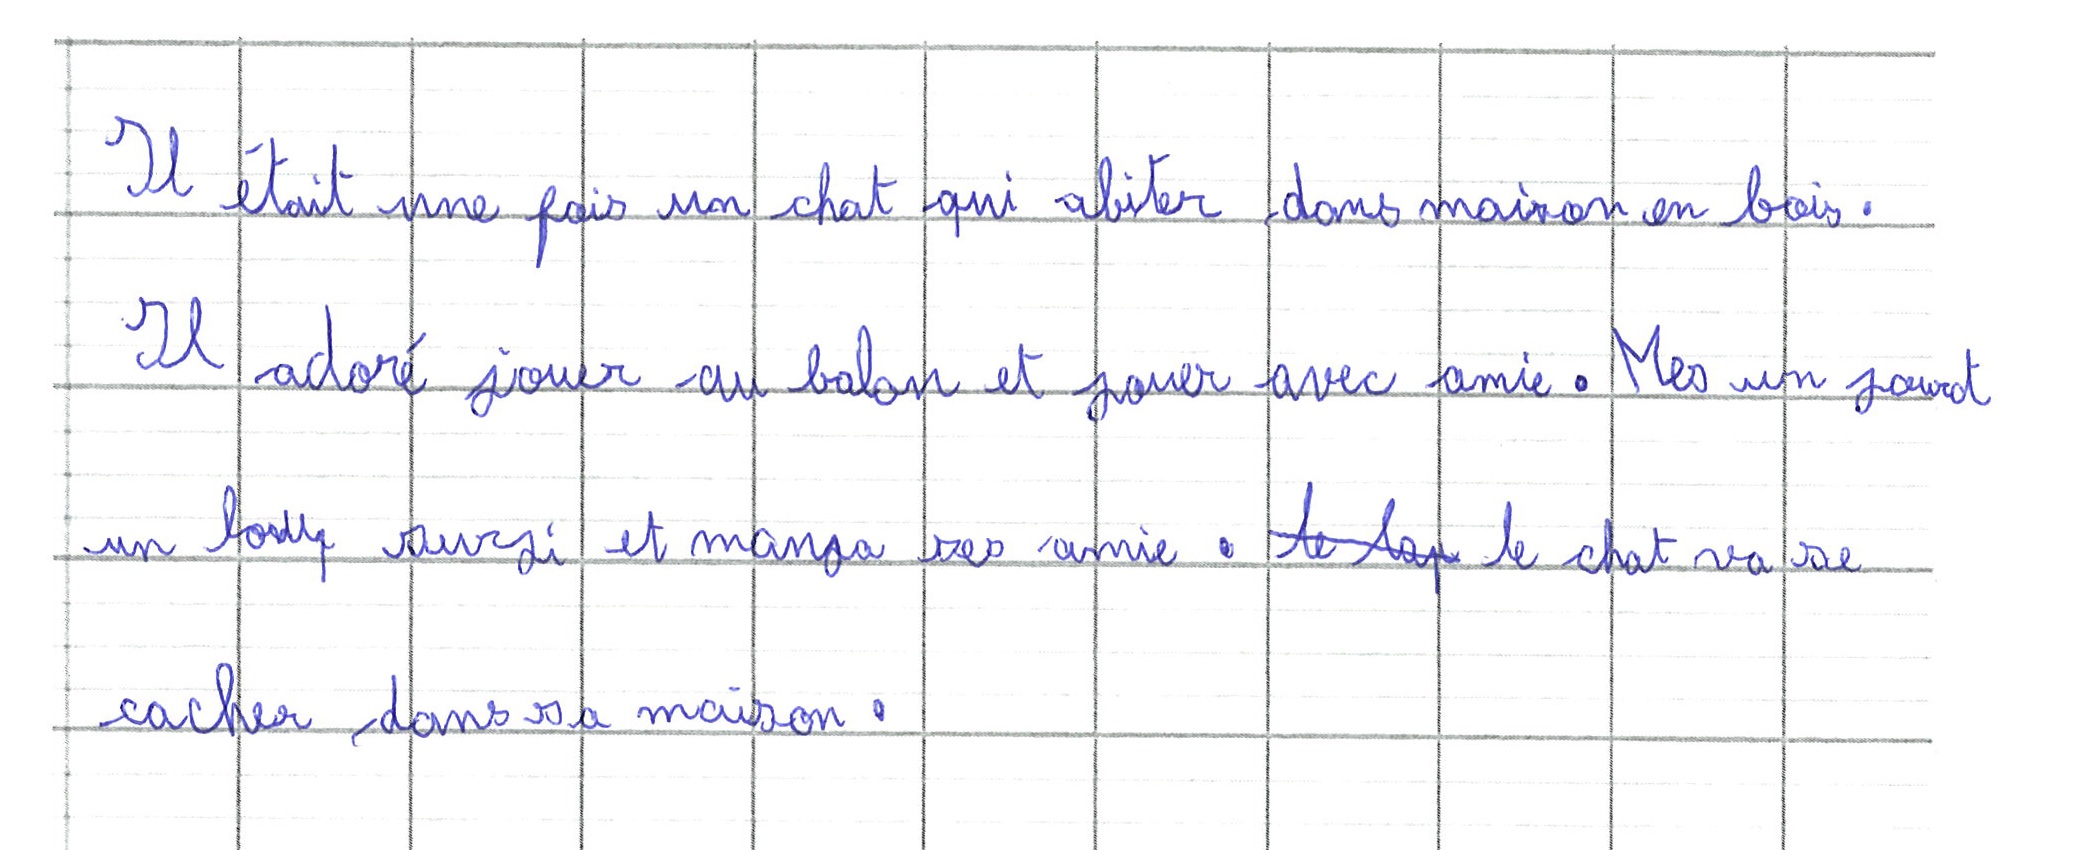 Il était une fois un chat qui abiter dans maison en bois.
Il adoré jouer au balon et jouer avec amie. Mes un jourt
un loup surgi et manga ses amie. le lap le chat va se
cacher dans sa maison.